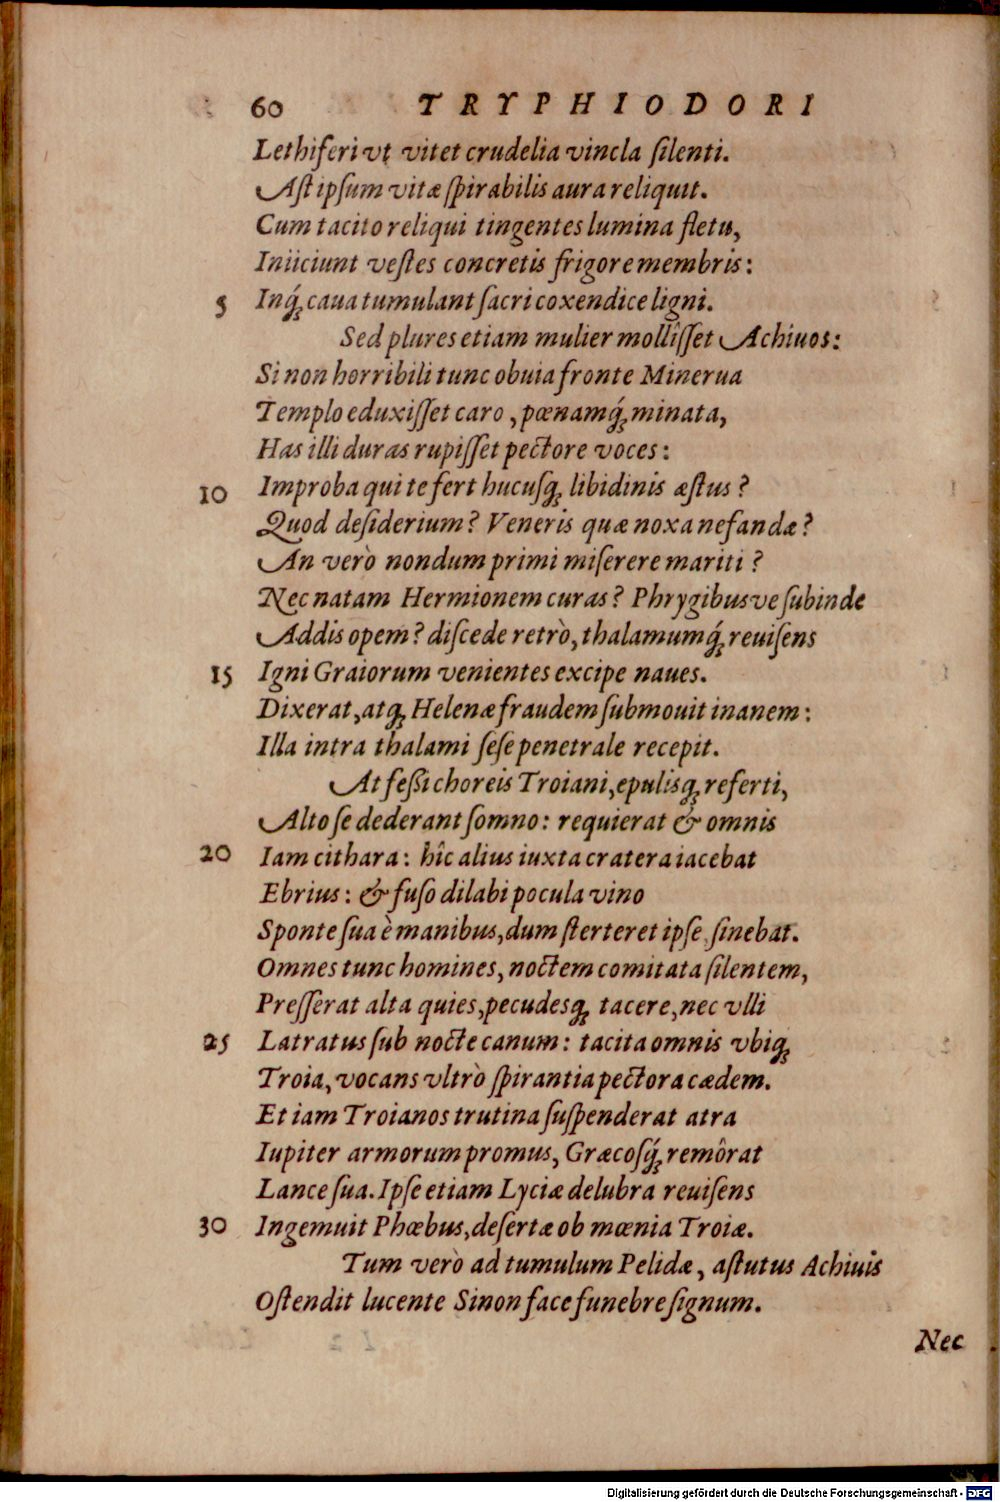 60 TRYPHIODORI
Lethiferi vt vitet crudelia vincla ſilenti.
Aſt ipſum vitæ ſpirabilis aura reliquit.
Cum tacito reliqui tingentes lumina fletu,
Iniiciunt veſtes concretis frigore membris:
5 Inq́ꝫ caua tumulant ſacri coxendice ligni.
Sed plures etiam mulier molliſſet Achiuos:
Si non horribili tunc obuia fronte Minerua
Templo eduxiſſet caro, pœnamq́ꝫ minata,
Has illi duras rupiſſet pectore voces:
10 Improba qui te fert hucuſqꝫ libidinis æſtus?
Quod deſiderium? Veneris quæ noxa nefandæ?
An verò nondum primi miſerere mariti?
Nec natam Hermionem curas? Phrygibusve ſubinde
Addis opem? diſcede retrò, thalamumq́ꝫ reuiſens
15 Igni Graiorum venientes excipe naues.
Dixerat, atqꝫ Helenæ fraudem ſubmouit inanem:
Illa intra thalami ſeſe penetrale recepit.
At feſſi choreis Troiani, epulisqꝫ referti,
Alto ſe dederant ſomno: requierat & omnis
20 Iam cithara: hîc alius iuxta cratera iacebat
Ebrius: & fuſo dilabi pocula vino
Sponte ſua è manibus, dum ſterteret ipſe, ſinebat.
Omnes tunc homines, noctem comitata ſilentem,
Preſſerat alta quies, pecudesqꝫ tacere, nec vlli
25 Latratus ſub nocte canum: tacita omnis vbiqꝫ
Troia, vocans vltrò ſpirantia pectora cædem.
Et iam Troianos trutina ſuſpenderat atra
Iupiter armorum promus, Græcoſq́ꝫ remôrat
Lance ſua. Ipſe etiam Lyciæ delubra reuiſens
30 Ingemuit Phœbus, deſertæ ob mœnia Troiæ.
Tum verò ad tumulum Pelidæ, aſtutus Achiuis
Oſtendit lucente Sinon face funebre ſignum.
Nec
Digitalisierung gefördert durch die Deutsche Forschungsgemeinschaft - DFG